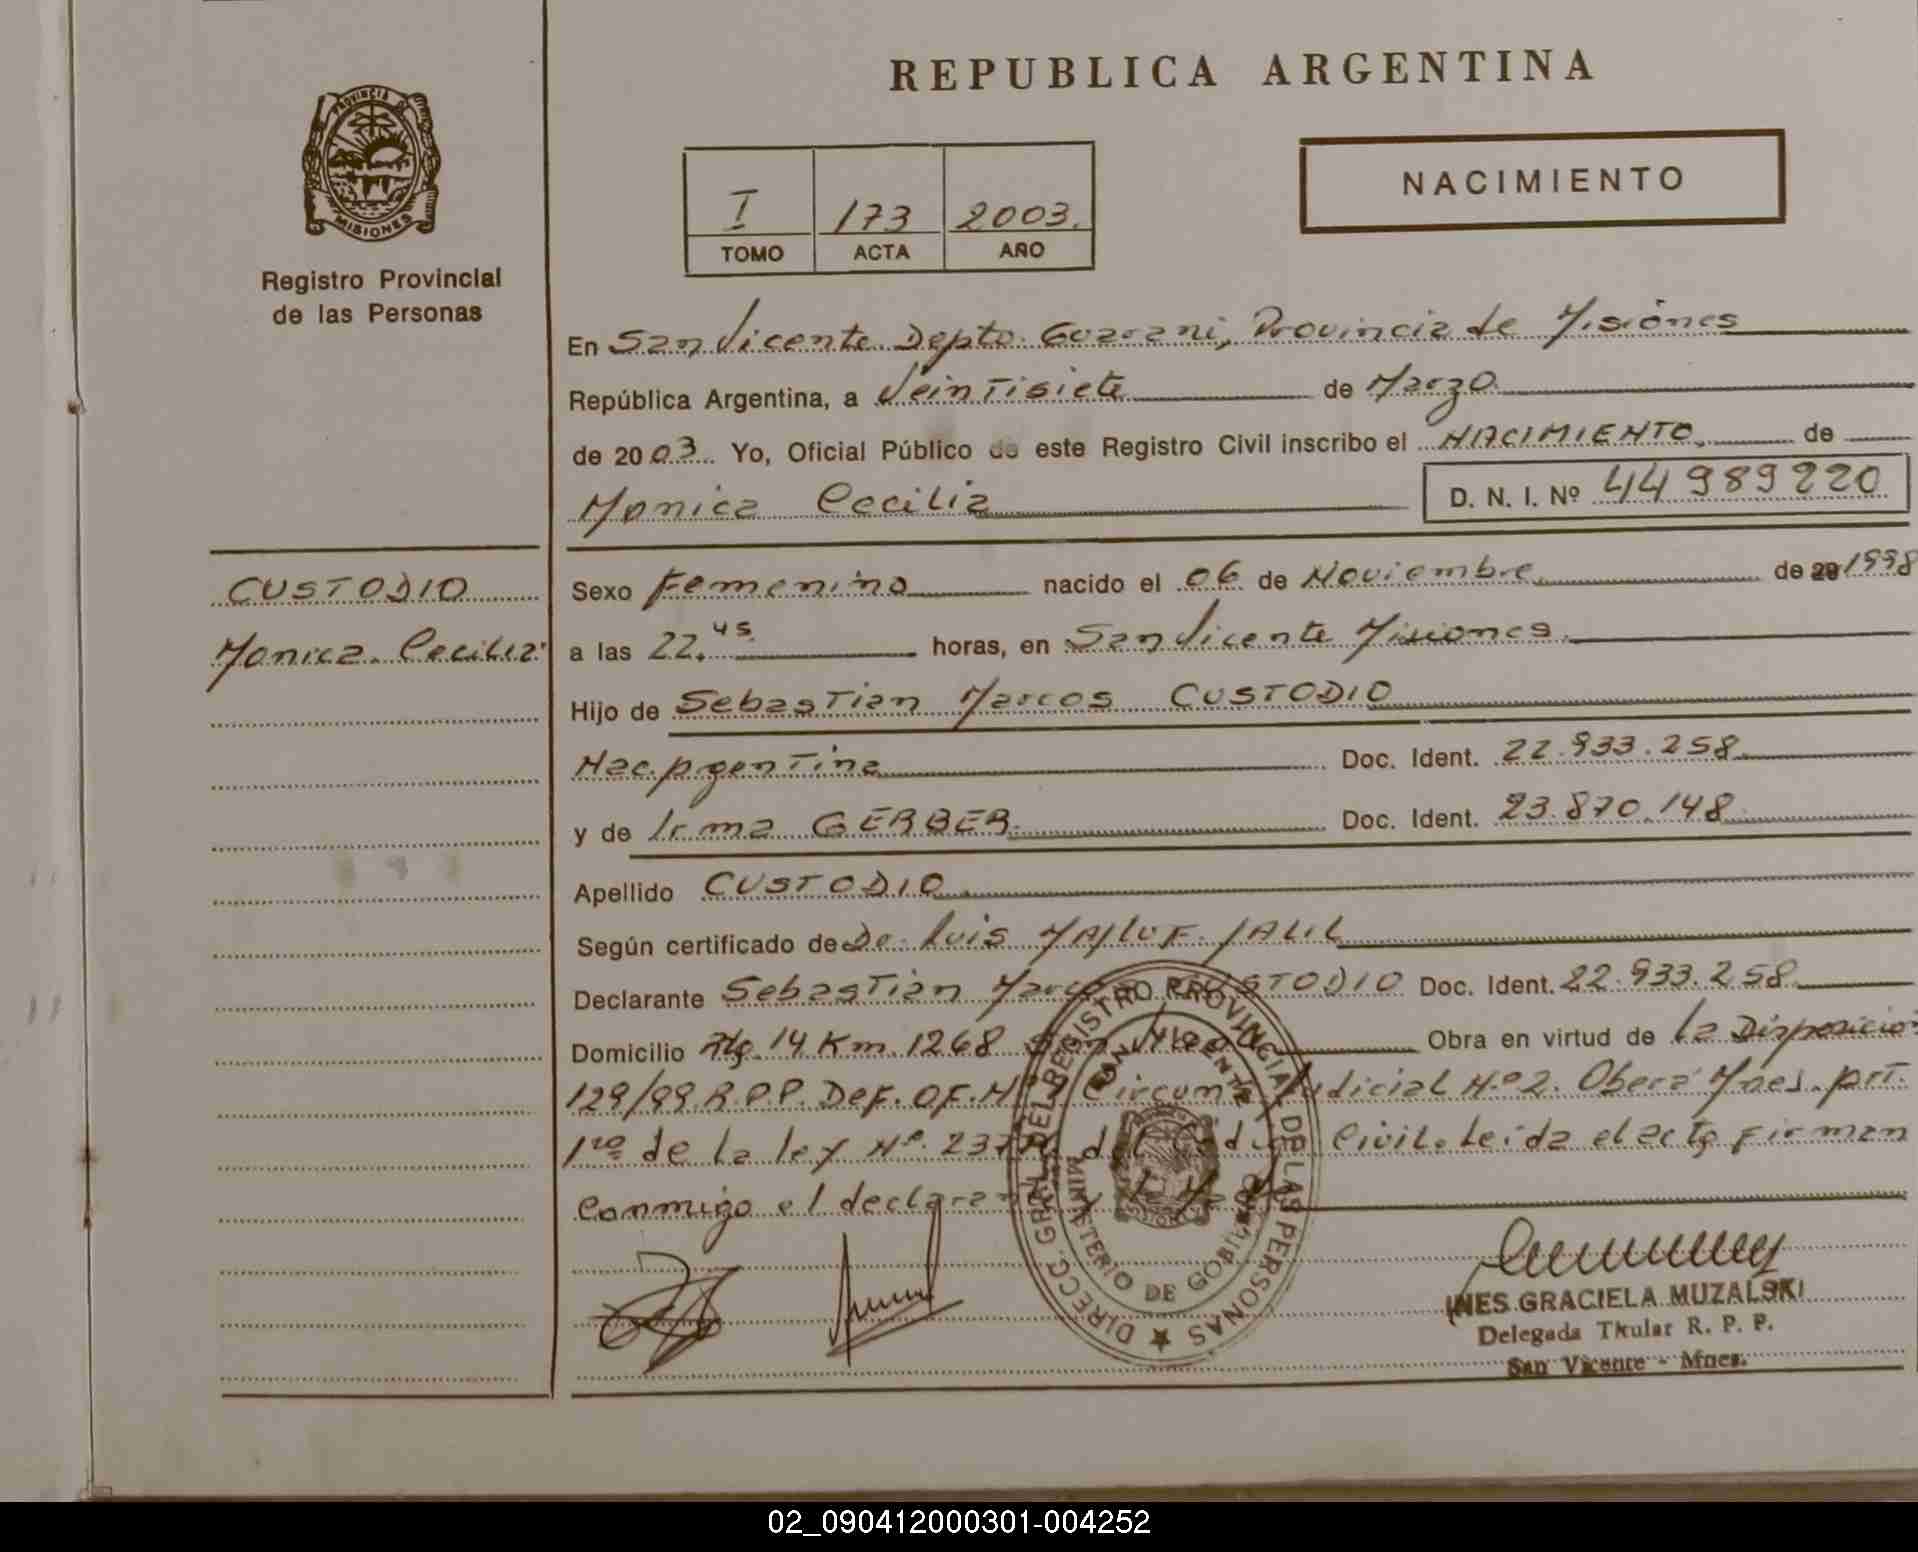 REPUBLICA ARGENTINA
PROVINCIA DE
MISIONES
Registro Provincial
de las Personas
NACIMIENTO
I 173 2003.
TOMO ACTA AÑO
En San Vicente Depto. Guarani, Provincia de Misiones
República Argentina, a Veintisiete de Marzo
de 2003. Yo, Oficial Público de este Registro Civil inscribo el NACIMIENTO. de
Monica Cecilia D. N. I. Nº 44989220
CUSTODIO
Monica Cecilia
Sexo Femenino nacido el 06 de Noviembre de 20 1998
a las 22.45 horas, en San Vicente Misiones.
Hijo de Sebastian Marcos CUSTODIO
Nac. Argentina Doc. Ident. 22.933.258
y de Irma GERBER. Doc. Ident. 23.870.148
Apellido CUSTODIO.
Según certificado de Dr. Luis JALIL
Declarante Sebastian Marcos CUSTODIO Doc. Ident. 22.933.258
Domicilio 14 Km. 1268 San Vicente Obra en virtud de la Disposicio
129/99. R.P.P. Def. Of. Nº Circuns. Judicial N.º 2. Obera Mnes. Art.
1ro de la Ley Nº. del Código Civil. Leida el acta firman
conmigo el declarante
DIRECC. GRAL. DEL REGISTRO PROVINCIAL DE LAS PERSONAS
SAN VICENTE
MINISTERIO DE GOBIERNO
MISIONES
INES GRACIELA MUZALSKI
Delegada Titular R. P. P.
San Vicente - Mnes.
02_090412000301-004252